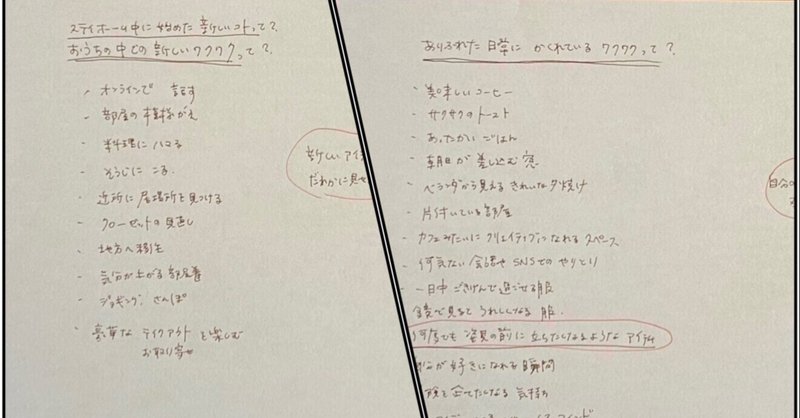 ステイホーム中に始めた新しいコトって?
おうちの中での新しいワクワクって?
・オンラインで 話す
・部屋の模様がえ
・料理にハマる
・そうじに こる
・近所に居場所を見つける
・クローゼットの見直し
・地方へ移住
・気分が上がる部屋着
・ジョギング、さんぽ
・豪華な テイクアウト を楽しむ
お取り寄せ
新しいアイ
だれかに見せ
ありふれた日常に かくれている ワクワクって?
・美味しいコーヒー
・サクサクのトースト
・あったかい ごはん
・朝日が 差し込む 窓
・ベランダから見える きれいな夕焼け
・片付いている部屋
・カフェみたいに クリエイティブになれる スペース
・何気ない 会話や SNSでの やりとり
・一日中 ごきげんで 過ごせる服
鏡で見るとうれしくなる 服
何度でも 姿見の前に 立ちたくなるような アイテム
が好きになれる 瞬間
を企てたくなる 気持ち
自分の